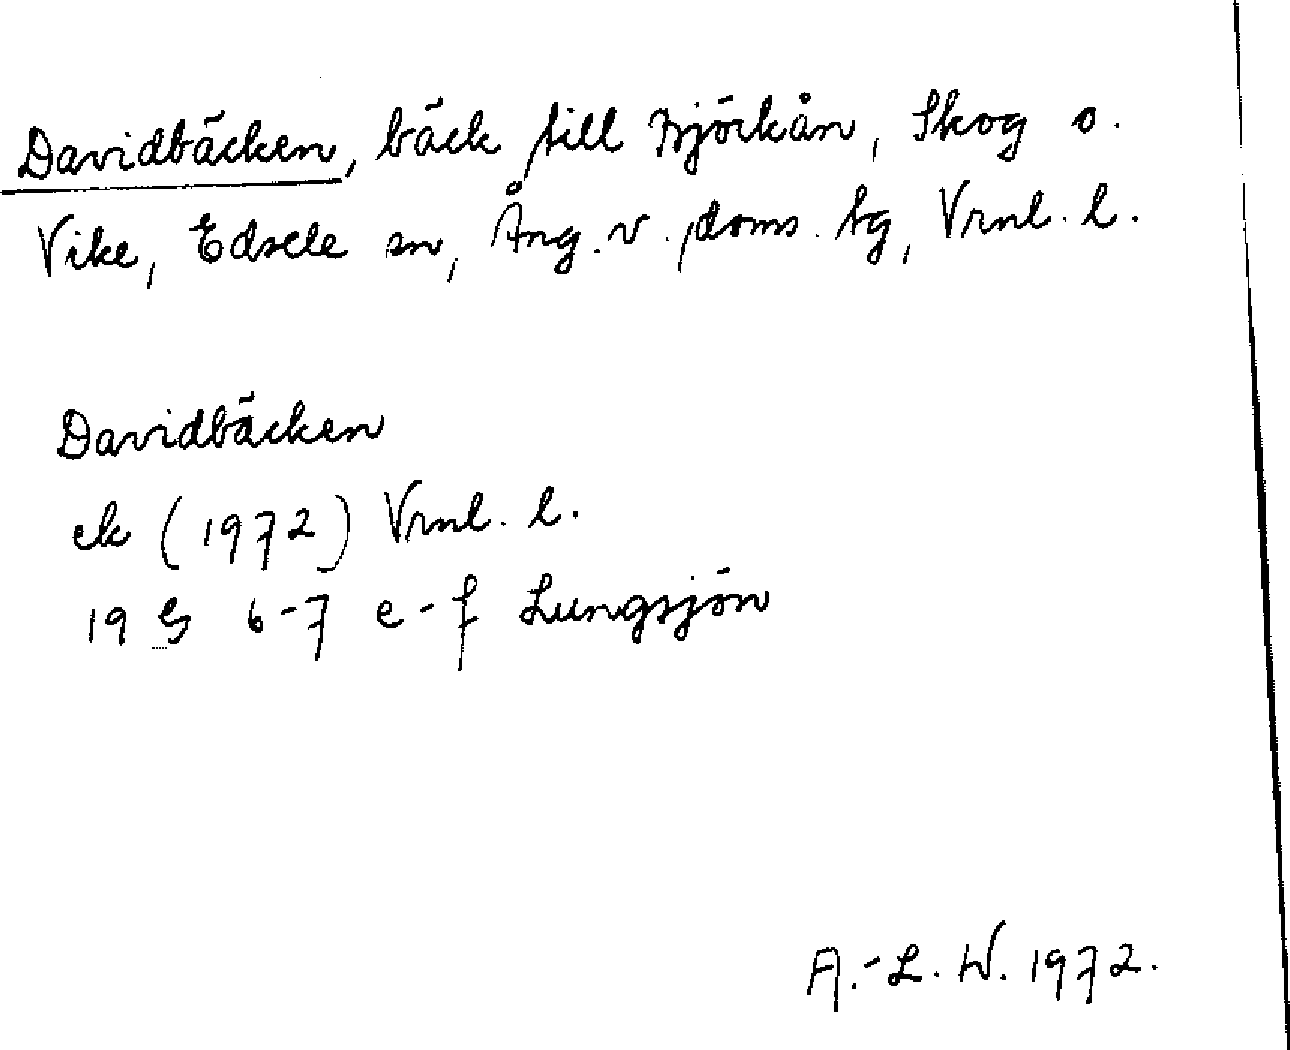 Davidbäcken, bäck till Björkån, Skog o.
Vike, Edsele sn, Ång. v. doms. tg, Vrnl. l.
Davidbäcken
ek (1972) Vrnl. l.
19 G 6-7 e-f Lungsjön
A.-L. W. 1972.